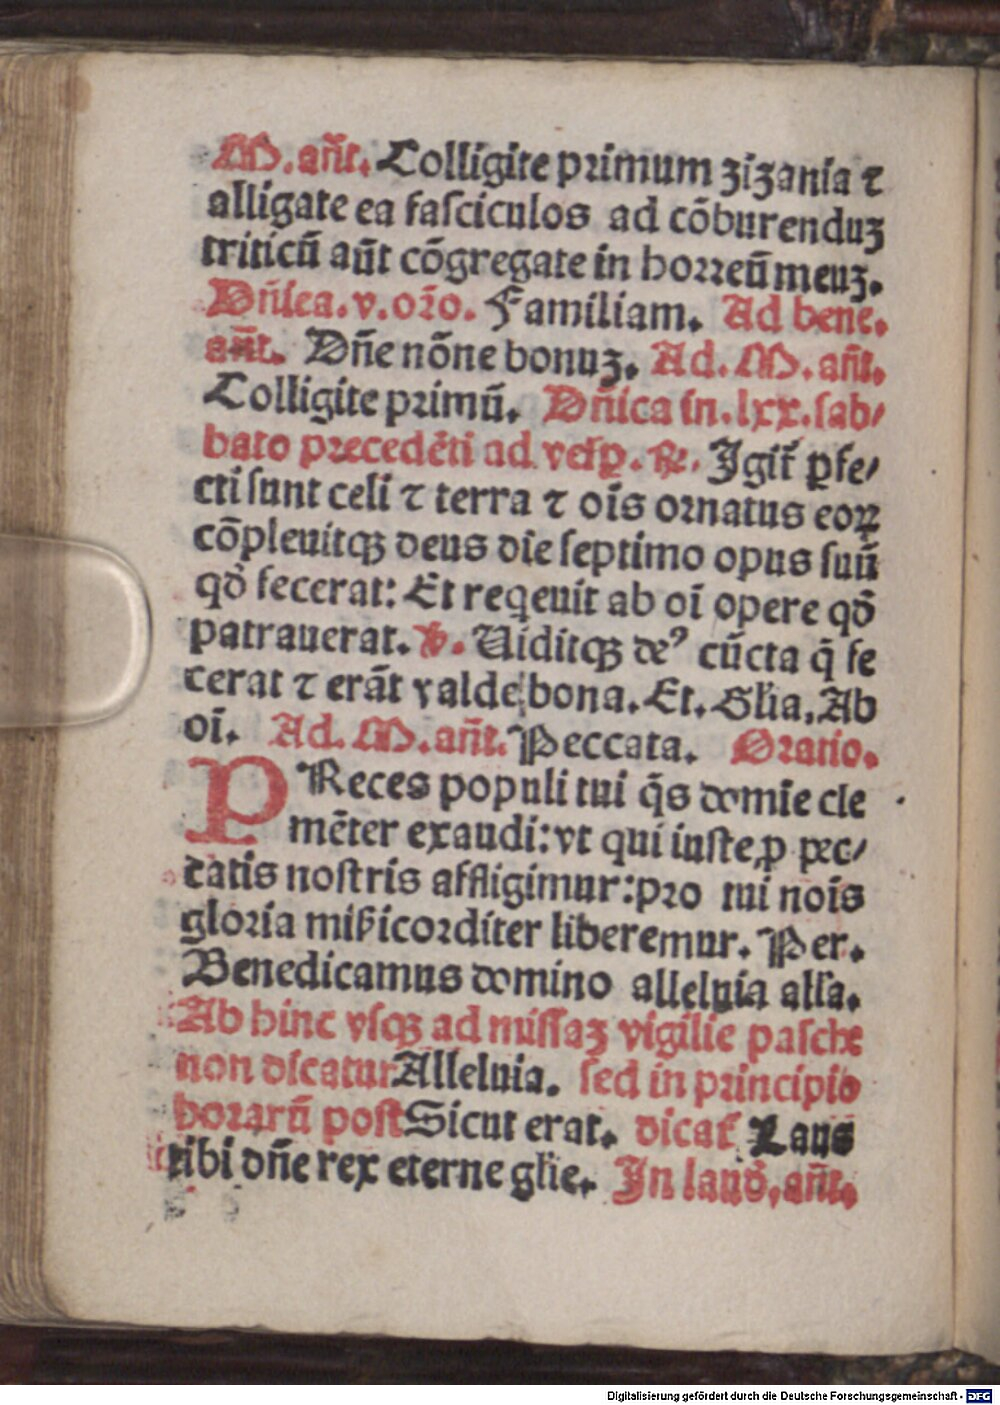 M. añt. Colligite primum zizania ⁊
alligate ea fasciculos ad cõburenduꝫ
triticũ aũt cõgregate in horreũ meuꝫ.
Dñica. v. oro. Familiam. Ad bene.
añt. Dñe nõne bonuꝫ. Ad. M. añt.
Colligite primũ. Dñica in. lxx. sab/
bato precedẽti ad vesp. ℟. Igit̃ ꝑfe/
cti sunt celi ⁊ terra ⁊ oĩs ornatus eoꝝ
cõpleuitqꝫ deus die septimo opus suũ
qð fecerat: Et reqeuit ab oĩ opere qð
patrauerat. ℣. Uiditqꝫ deꝰ cũcta q̃ fe
cerat ⁊ erãt valde bona. Et. Glia. Ab
oĩ. Ad. M. añt. Peccata. Oratio.
PReces populi tui q̃s domie cle
mẽter exaudi: vt qui iuste ꝓ pec/
catis nostris affligimur: pro tui nois
gloria misicorditer liberemur. Per.
Benedicamus domino alleluia alla.
Ab hinc vsqꝫ ad missaꝫ vigilie pasche
non dicatur Alleluia. sed in principio
horarũ post Sicut erat. dicat̃ Laus
tibi dñe rex eterne glie. In laud. añt.
Digitalisierung gefördert durch die Deutsche Forschungsgemeinschaft - DFG